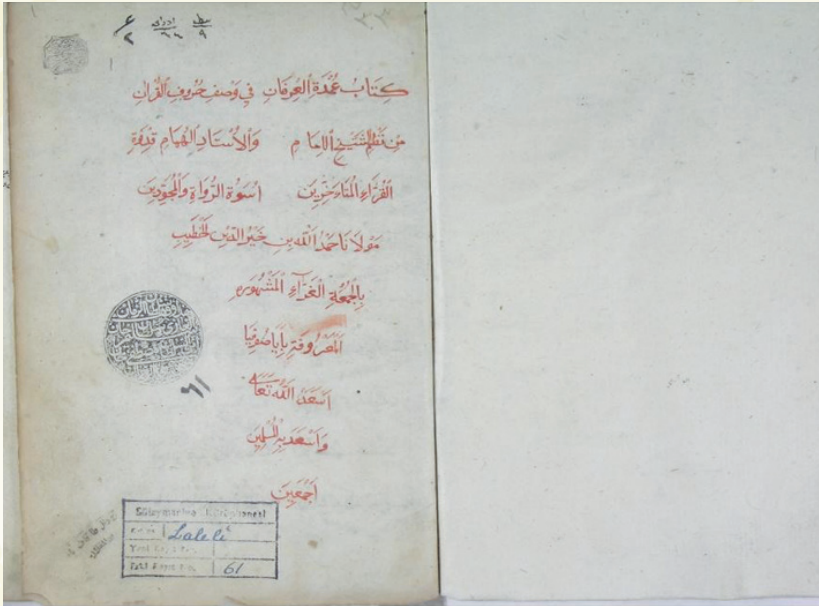 سطر ٩
اوراق ٦٦
٤
٢
كِتَابُ عُمْدَةِ الْعِرْفَانِ فِي وَصْفِ حُرُوفِ الْقُرْآنِ
مِنْ نَظْمِ الشَّيْخِ الْإِمَامِ وَالْأُسْتَادِ الْهُمَامِ قُدْوَةِ
الْقُرَّاءِ الْمُتَأَخِّرِينَ اُسْوَةِ الرُّوَاةِ وَالْمُجَوِّدِينَ
مَوْلَانَا حَمْدُ اللّٰهِ بْنِ خَيْرِ الدِّينِ الْخَطِيبِ
بِالْجُمْعَةِ الْغَرَّاءِ الْمَشْهُورَةِ
الْمَعْرُوفَةِ بِأَيَاصُوفِيَا
اَسْعَدَ اللّٰهُ تَعَالَى
وَاَسْعَدَ بِهِ الْمُسْلِمِينَ
اَجْمَعِينَ
٦١
Süleymaniye Kütüphanesi
Laleli
Yeni Kayıt No.
Eski Kayıt No. 61